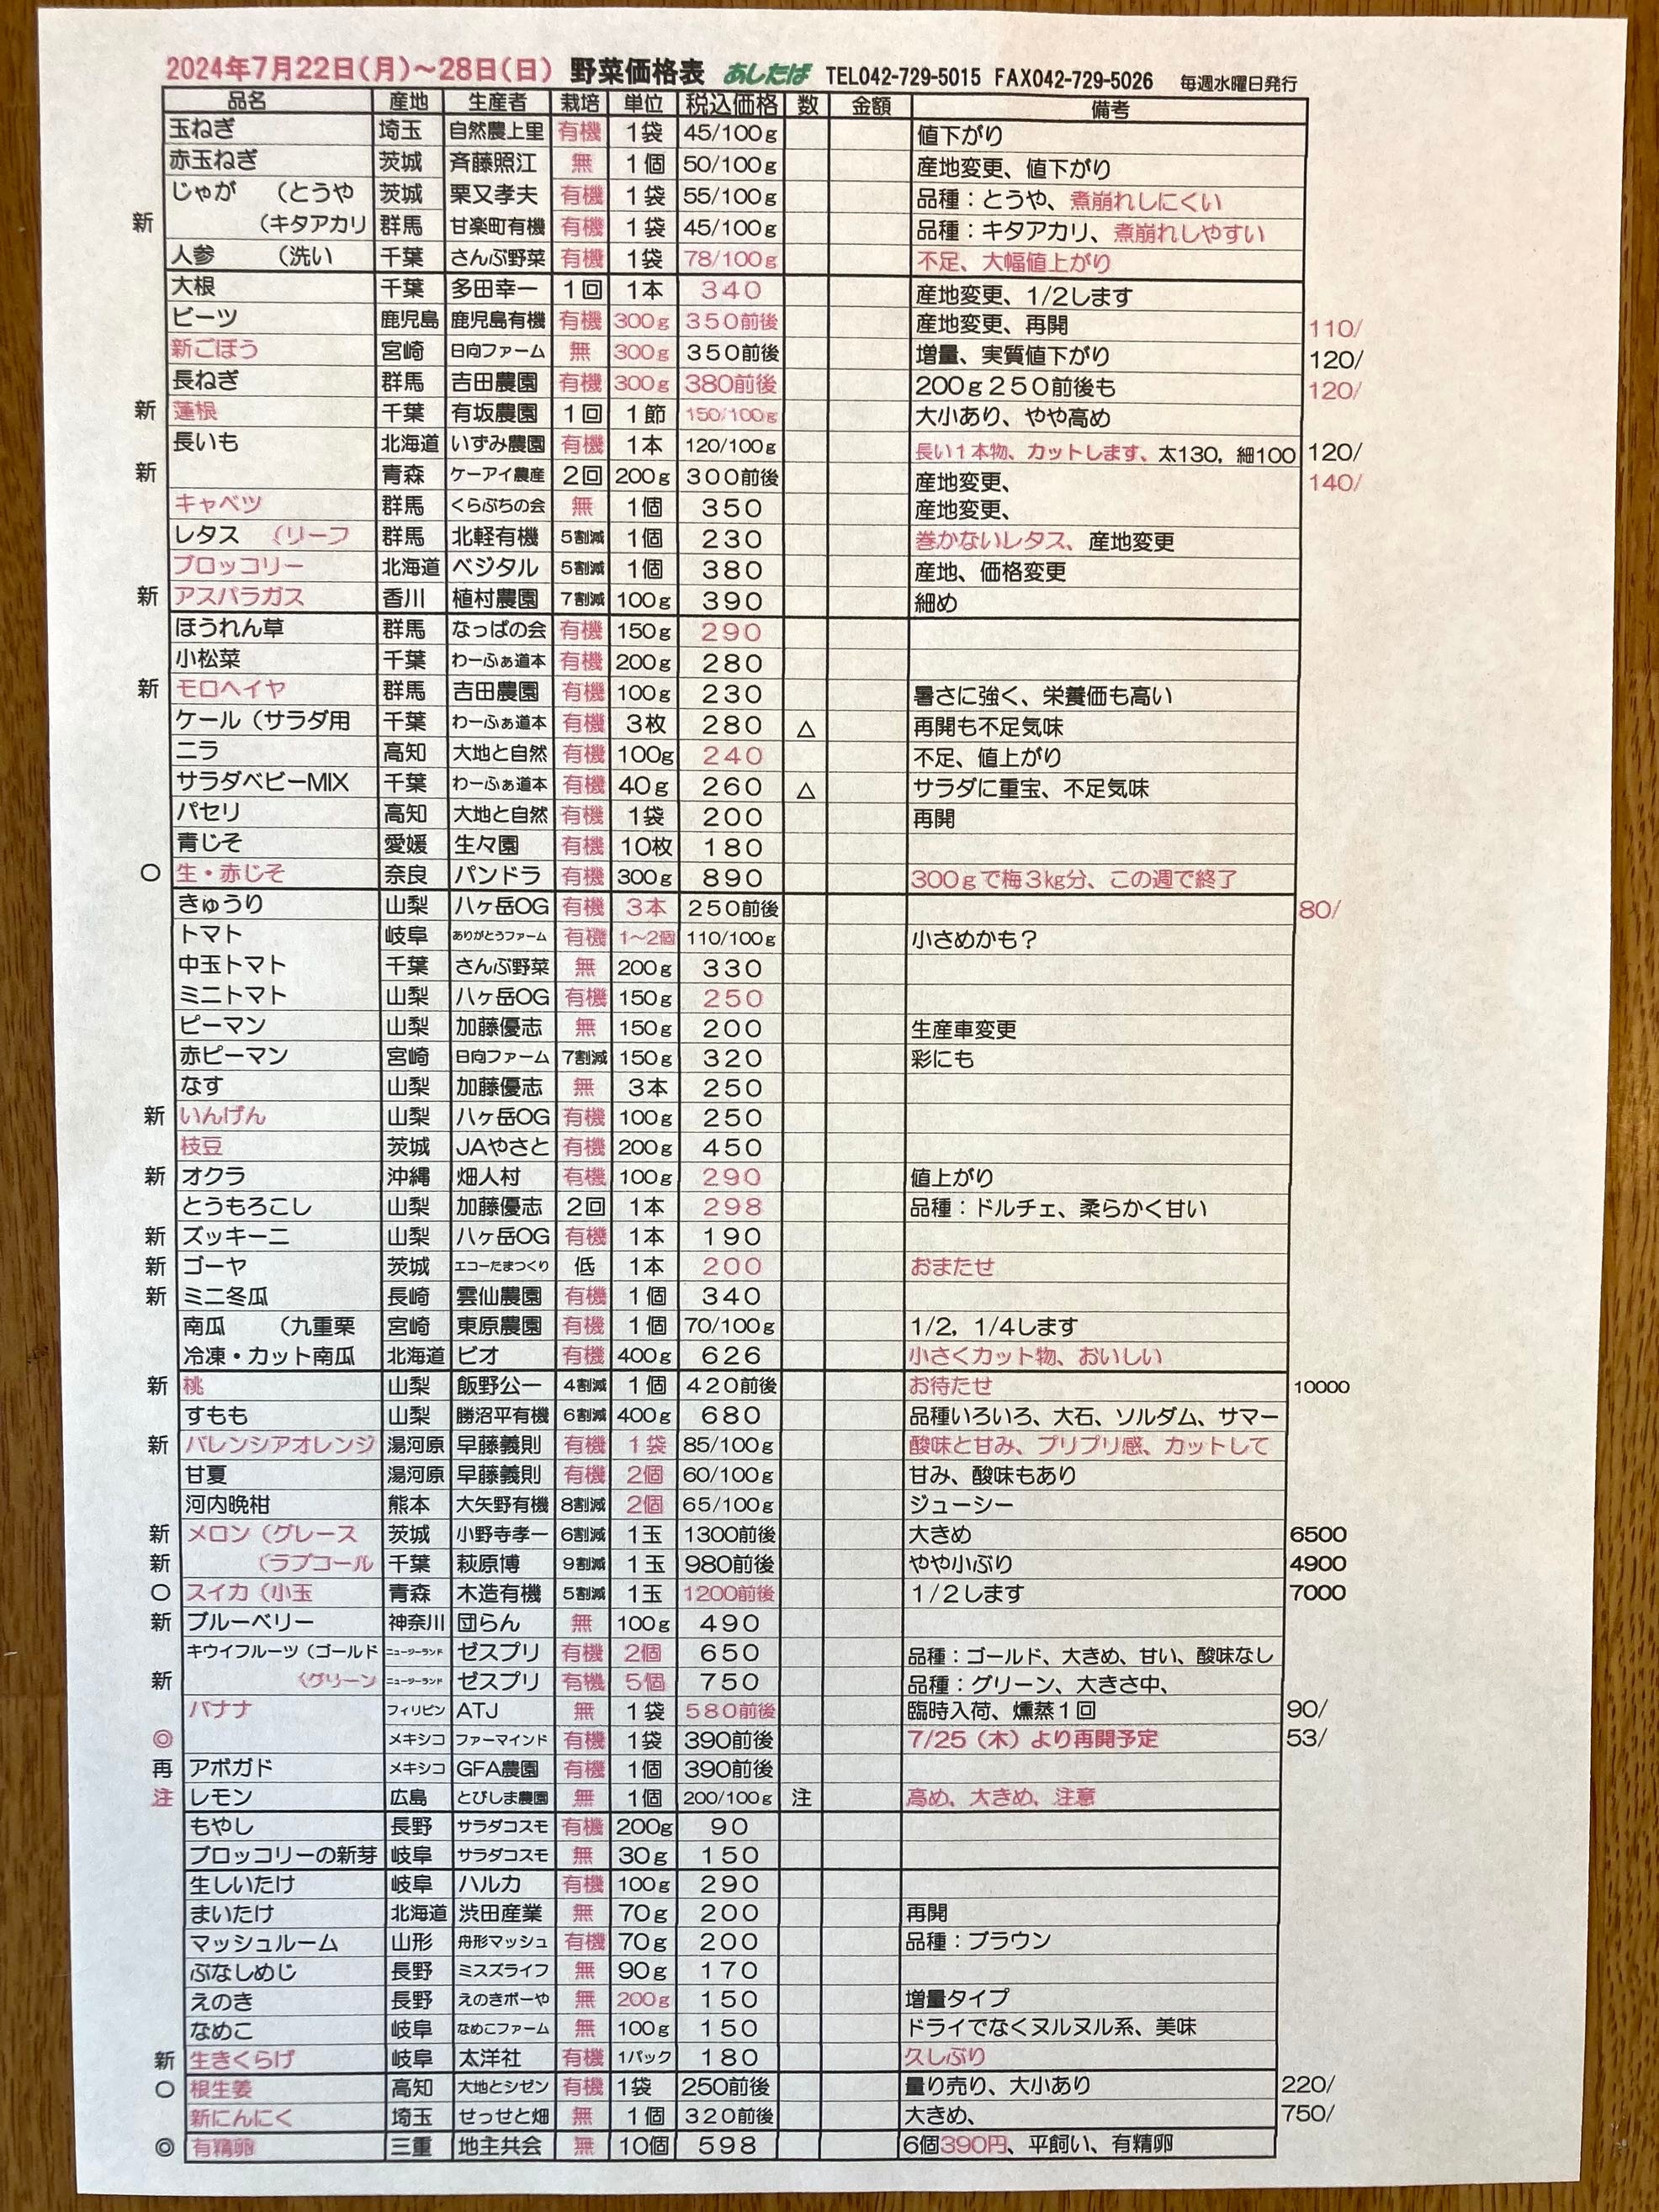 2024年7月22日(月)～28日(日) 野菜価格表 あしたば TEL042-729-5015 FAX042-729-5026 毎週水曜日発行
品名 産地 生産者 栽培 単位 税込価格 数 金額 備考
玉ねぎ 埼玉 自然農上里 有機 1袋 45/100g 値下がり
赤玉ねぎ 茨城 斉藤照江 無 1個 50/100g 産地変更、値下がり
じゃが （とうや 茨城 栗又孝夫 有機 1袋 55/100g 品種：とうや、煮崩れしにくい
新 （キタアカリ 群馬 甘楽町有機 有機 1袋 45/100g 品種：キタアカリ、煮崩れしやすい
人参 （洗い 千葉 さんぶ野菜 有機 1袋 78/100g 不足、大幅値上がり
大根 千葉 多田幸一 1回 1本 340 産地変更、1/2します
ビーツ 鹿児島 鹿児島有機 有機 300g 350前後 産地変更、再開 110/
新ごぼう 宮崎 日向ファーム 無 300g 350前後 増量、実質値下がり 120/
長ねぎ 群馬 吉田農園 有機 300g 380前後 200g250前後も 120/
新 蓮根 千葉 有坂農園 1回 1節 150/100g 大小あり、やや高め
長いも 北海道 いずみ農園 有機 1本 120/100g 長い1本物、カットします、太130，細100 120/
新 青森 ケーアイ農産 2回 200g 300前後 産地変更、 140/
キャベツ 群馬 くらぶちの会 無 1個 350 産地変更、
レタス （リーフ 群馬 北軽有機 5割減 1個 230 巻かないレタス、産地変更
ブロッコリー 北海道 ベジタル 5割減 1個 380 産地、価格変更
新 アスパラガス 香川 植村農園 7割減 100g 390 細め
ほうれん草 群馬 なっぱの会 有機 150g 290
小松菜 千葉 わーふぁ道本 有機 200g 280
新 モロヘイヤ 群馬 吉田農園 有機 100g 230 暑さに強く、栄養価も高い
ケール（サラダ用 千葉 わーふぁ道本 有機 3枚 280 △ 再開も不足気味
ニラ 高知 大地と自然 有機 100g 240 不足、値上がり
サラダベビーMIX 千葉 わーふぁ道本 有機 40g 260 △ サラダに重宝、不足気味
パセリ 高知 大地と自然 有機 1袋 200 再開
青じそ 愛媛 生々園 有機 10枚 180
○ 生・赤じそ 奈良 パンドラ 有機 300g 890 300gで梅3㎏分、この週で終了
きゅうり 山梨 八ヶ岳OG 有機 3本 250前後 80/
トマト 岐阜 ありがとうファーム 有機 1～2個 110/100g 小さめかも？
中玉トマト 千葉 さんぶ野菜 無 200g 330
ミニトマト 山梨 八ヶ岳OG 有機 150g 250
ピーマン 山梨 加藤優志 無 150g 200 生産車変更
赤ピーマン 宮崎 日向ファーム 7割減 150g 320 彩にも
なす 山梨 加藤優志 無 3本 250
新 いんげん 山梨 八ヶ岳OG 有機 100g 250
枝豆 茨城 JAやさと 有機 200g 450
新 オクラ 沖縄 畑人村 有機 100g 290 値上がり
とうもろこし 山梨 加藤優志 2回 1本 298 品種：ドルチェ、柔らかく甘い
新 ズッキーニ 山梨 八ヶ岳OG 有機 1本 190
新 ゴーヤ 茨城 エコーたまつくり 低 1本 200 おまたせ
新 ミニ冬瓜 長崎 雲仙農園 有機 1個 340
南瓜 （九重栗 宮崎 東原農園 有機 1個 70/100g 1/2，1/4します
冷凍・カット南瓜 北海道 ビオ 有機 400g 626 小さくカット物、おいしい
新 桃 山梨 飯野公一 4割減 1個 420前後 お待たせ 10000
すもも 山梨 勝沼平有機 6割減 400g 680 品種いろいろ、大石、ソルダム、サマー
新 バレンシアオレンジ 湯河原 早藤義則 有機 1袋 85/100g 酸味と甘み、プリプリ感、カットして
甘夏 湯河原 早藤義則 有機 2個 60/100g 甘み、酸味もあり
河内晩柑 熊本 大矢野有機 8割減 2個 65/100g ジューシー
新 メロン（グレース 茨城 小野寺孝一 6割減 1玉 1300前後 大きめ 6500
新 （ラブコール 千葉 萩原博 9割減 1玉 980前後 やや小ぶり 4900
○ スイカ（小玉 青森 木造有機 5割減 1玉 1200前後 1/2します 7000
新 ブルーベリー 神奈川 団らん 無 100g 490
キウイフルーツ（ゴールド ニュージーランド ゼスプリ 有機 2個 650 品種：ゴールド、大きめ、甘い、酸味なし
新 （グリーン ニュージーランド ゼスプリ 有機 5個 750 品種：グリーン、大きさ中、
バナナ フィリピン ATJ 無 1袋 580前後 臨時入荷、燻蒸1回 90/
◎ メキシコ ファーマインド 有機 1袋 390前後 7/25（木）より再開予定 53/
再 アボガド メキシコ GFA農園 有機 1個 390前後
注 レモン 広島 とびしま農園 無 1個 200/100g 注 高め、大きめ、注意
もやし 長野 サラダコスモ 有機 200g 90
ブロッコリーの新芽 岐阜 サラダコスモ 無 30g 150
生しいたけ 岐阜 ハルカ 有機 100g 290
まいたけ 北海道 渋田産業 無 70g 200 再開
マッシュルーム 山形 舟形マッシュ 有機 70g 200 品種：ブラウン
ぶなしめじ 長野 ミスズライフ 無 90g 170
えのき 長野 えのきボーや 無 200g 150 増量タイプ
なめこ 岐阜 なめこファーム 無 100g 150 ドライでなくヌルヌル系、美味
新 生きくらげ 岐阜 太洋社 有機 1パック 180 久しぶり
○ 根生姜 高知 大地とシゼン 有機 1袋 250前後 量り売り、大小あり 220/
新にんにく 埼玉 せっせと畑 無 1個 320前後 大きめ、 750/
◎ 有精卵 三重 地主共会 無 10個 598 6個390円、平飼い、有精卵